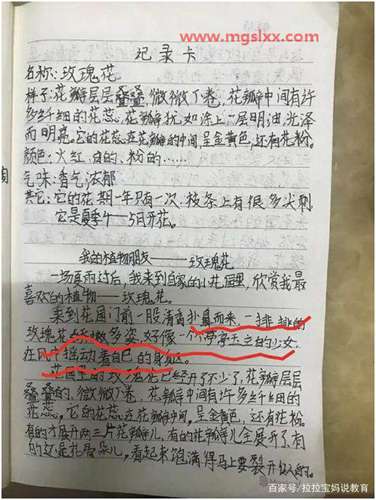 www.mgslxx.com
记录卡
名称:玫瑰花
样子:花瓣层层叠叠,微微丁卷,花瓣中间有许
多纤细的花蕊,花瓣犹如涂上一层明油,光泽
而明亮。它的花蕊在花瓣的中间,呈金黄色,还有花粉。
颜色:火红、白的、粉的……
气味:香气浓郁
其它:它的花期一年只有一次,枝条上有很多尖刺
它是夏季4—5月开花。
我的植物朋友——玫瑰花
一场夏雨过后,我来到自家的小花园里,欣赏我最
喜欢的植物——玫瑰花。
来到花园门前一股清香扑鼻而来,一排排的
玫瑰花 多姿,好像一个个亭亭玉立的少女,
在风中摇动着自己的身 。
的玫瑰花已经开了不少了,花瓣层层
叠叠的,微微丁卷,花瓣中间有许多纤细的
花蕊。它的花蕊在花瓣中间,呈金黄色,还有花粉。
有的才展开两三片花瓣儿,有的花瓣儿全展开了,有
的还是花骨朵儿,看起来饱满得马上要裂开似的。
百家号/拉拉宝妈说教育